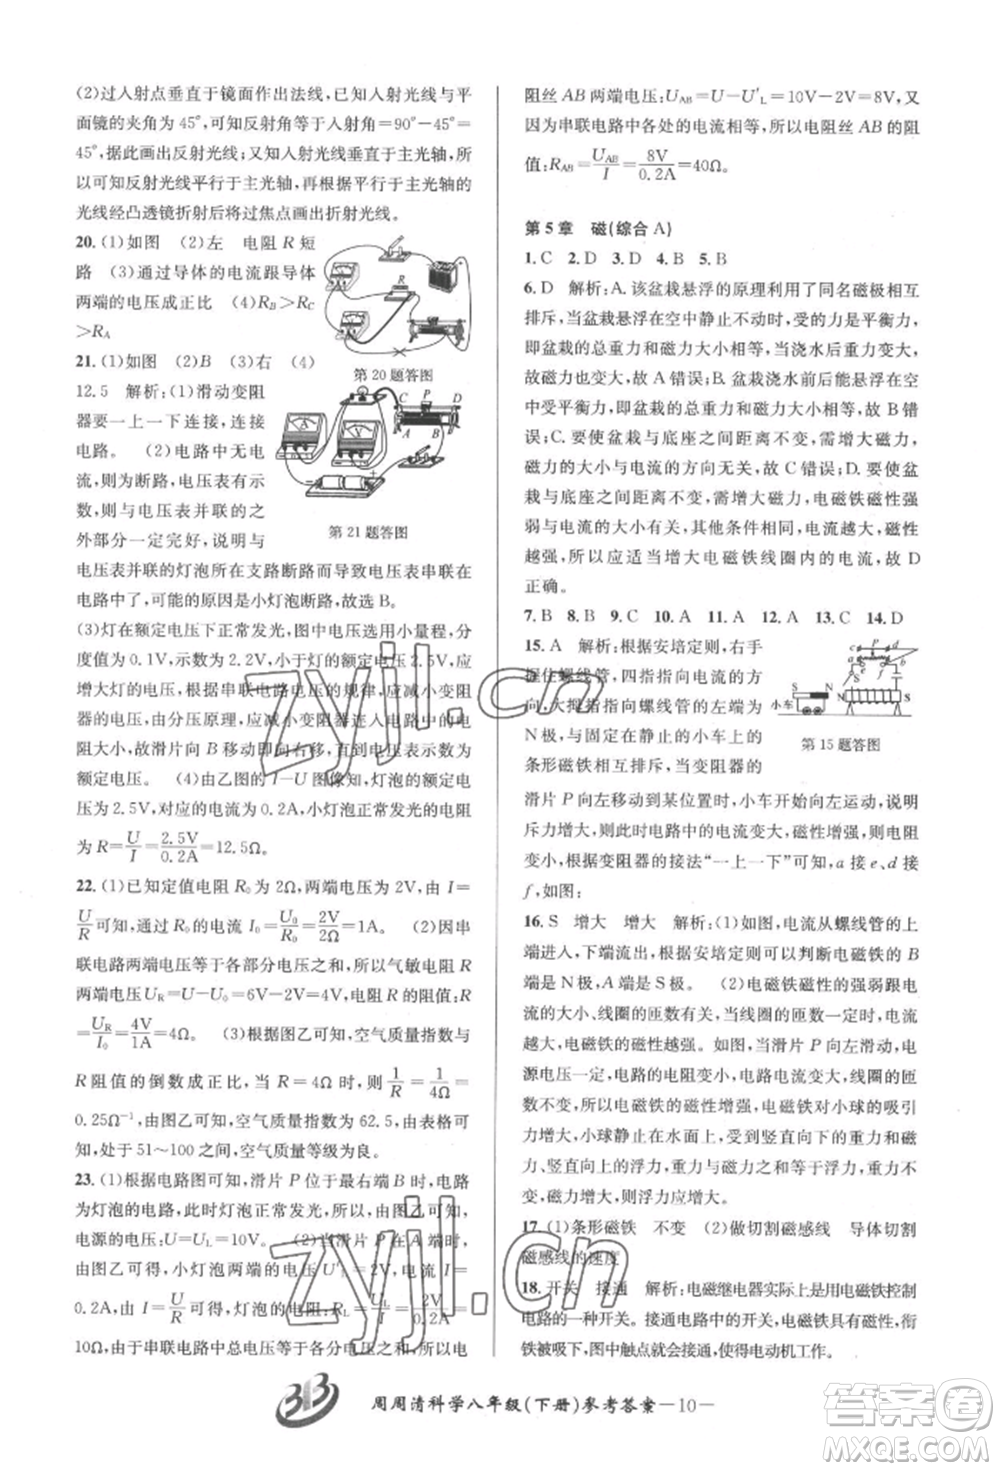 (2)过入射点垂直于镜面作出法线,已知入射光线与平
面镜的夹角为45°,可知反射角等于入射角=90°-45°=
45°,据此画出反射光线;又知入射光线垂直于主光轴,
可知反射光线平行于主光轴,再根据平行于主光轴的
光线经凸透镜折射后将过焦点画出折射光线。
20.(1)如图 (2)左 电阻R短
路 (3)通过导体的电流跟导体
两端的电压成正比 (4)RB>RC
>RA
第20题答图
21.(1)如图 (2)B (3)右 (4)
12.5 解析:(1)滑动变阻
器要一上一下连接,连接
电路。 (2)电路中无电
流,则为断路,电压表有示
数,说明与电压表并联的
外部分一定完好,说明与
C P D
A B
第21题答图
电压表并联的灯泡所在支路断路而导致电压表串联在
电路中了,可能的原因是小灯泡断路,故选B。
(3)灯在额定电压下正常发光,图中电压选用小量程,分
度值为0.1V,示数为2.2V,小于灯的额定电压2.5V,应
增大灯的电压,根据串联电路电压的规律,应减小变阻
器的电压,由分压原理,应减小变阻器连入电路中的电
阻大小,故滑片向B移动即向右移,直到电压表示数为
额定电压。 (4)由乙图的I—U图像知,灯泡的额定电
压为2.5V,对应的电流为0.2A,小灯泡正常发光的电阻
为R=U/I=2.5V/0.2A=12.5Ω。
22.(1)已知定值电阻R0为2Ω,两端电压为2V,由I=
U/R可知,通过R0的电流I0=U0/R0=2V/2Ω=1A。 (2)因串
联电路两端电压等于各部分电压之和,所以气敏电阻R
两端电压UR=U-U0=6V-2V=4V,电阻R的阻值:R
=UR/I0=4V/1A=4Ω。 (3)根据图乙可知,空气质量指数与
R阻值的倒数成正比,当R=4Ω时,则1/R=1/4Ω=
0.25Ω⁻¹,由图乙可知,空气质量指数为62.5,由表格可
知,处于51~100之间,空气质量等级为良。
23.(1)根据电路图可知,滑片P位于最右端B时,电路
为灯泡的电路,灯泡两端的电压等于电源电压,由图乙可知,
电源的电压:U=UL=10V。 (2)当滑片P在A端时,由
图乙可得,小灯泡两端的电压U'L=2V,电路中的电流I=
0.2A,由I=U/R可得,灯泡的电阻:RL=U'L/I=2V/0.2A=
10Ω,由于串联电路中总电压等于各部分电压之和,则电
阻丝AB两端电压:UAB=U-U'L=10V-2V=8V,又
因为串联电路中各处的电流相等,所以电阻丝AB的阻
值:RAB=UAB/I=8V/0.2A=40Ω。
第5章 磁(综合A)
1.C 2.D 3.D 4.B 5.B
6.D 解析:A.该盆栽悬浮的原理利用了同名磁极相互
排斥,当盆栽悬浮在空中静止不动时,受的力是平衡力,
即盆栽的总重力和磁力大小相等,当浇水时,总重力增大,
故磁力也变大,故A错误;B.盆栽浇水前后都受平衡
力,即盆栽的总重力和磁力大小相等,故B错
误;C.要使盆栽与底座之间的距离不变,需增大磁力,
磁力的大小与电流的方向无关,故C错误;D.要使盆
栽与底座之间的距离不变,需增大磁力,电磁铁磁性强
弱与电流的大小有关,其他条件相同时,电流越大,磁性
越强,所以可适当增大电磁铁线圈内的电流,故D
正确。
7.B 8.B 9.C 10.A 11.A 12.A 13.C 14.D
15.A 解析:根据安培定则,右手
握住螺线管,四指指向电流的方
向,大拇指指向螺线管的左端为
N极,与固定在静止的小车上的
条形磁铁相互排斥,当变阻器的
小车 S N
第15题答图
滑片P向左移动到某位置时,小车向左运动,说明
斥力增大,则此时电路中的电流变大,磁性增强,则电阻
变小,根据变阻器的接法“一上一下”可知,a接e、d接
f,如图:
16.S 增大 增大 解析:(1)如图,电流从螺线管的上
端进入,下端流出,根据安培定则可以判断电磁铁的B
端是N极,A端是S极。 (2)电磁铁磁性的强弱跟电流
的大小、线圈的匝数有关,线圈的匝数一定时,电流越
大,电磁铁的磁性越强。如图,当滑片P向左滑动时,
电源电压一定,电路的电阻变小,电路电流变大,线圈的匝
数不变,所以电磁铁的磁性增强,电磁铁对小球的吸引
力增大。 (3)小球静止在水面上,受到竖直向下的重力和磁
力,受到竖直向上的浮力,重力与磁力之和等于浮力,重
力不变,磁力增大,则浮力应增大。
17.(1)条形磁铁 不变 (2)做切割磁感线 导体切割
磁感线的速度
18.开关 接通 解析:电磁继电器实际上是用电磁铁控制
电路的一种开关。当控制电路接通时,电磁铁有磁性,衔
铁被吸下,图中触点就会接通,使得电动机工作。
周周清科学八年级(下册)参考答案—10—
zyjl.cn
zyjl.cn
答案圈
MXQE.COM